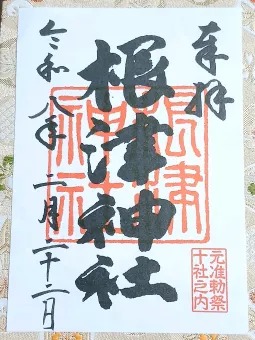 奉拝
根津神社
根津
神社
元准勅祭
十社之内
令和八年二月二十二日